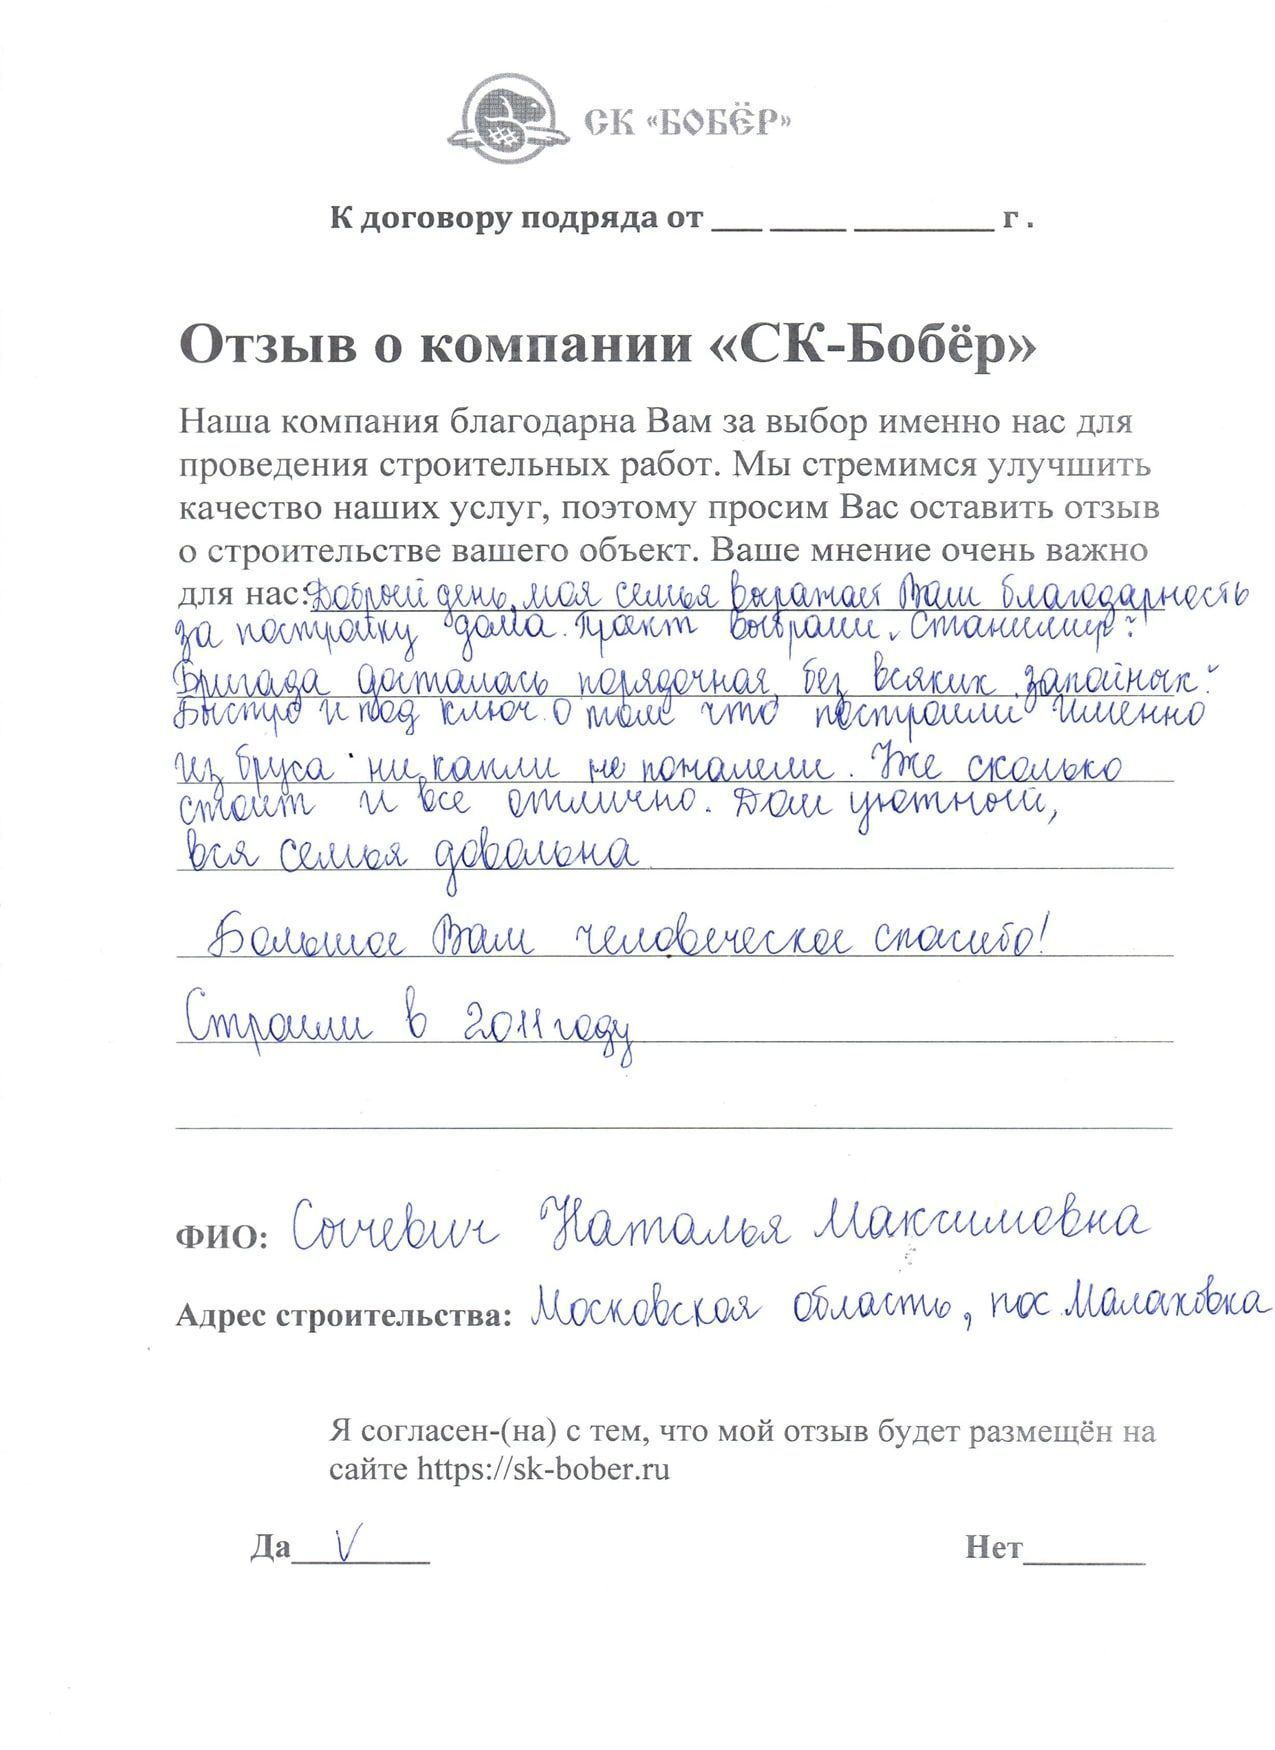 СК «БОБЁР»
К договору подряда от ___ _____ _________ г .
Отзыв о компании «СК-Бобёр»
Наша компания благодарна Вам за выбор именно нас для
проведения строительных работ. Мы стремимся улучшить
качество наших услуг, поэтому просим Вас оставить отзыв
о строительстве вашего объект. Ваше мнение очень важно
для нас: Добрый день, моя семья выражает Вам благодарность
за постройку дома. Проект выбрали „Станимир“.
Бригада досталась порядочная, без всяких „запойных“.
Быстро и под ключ. О том что построили именно
из бруса ни капли не пожалели. Уже сколько
стоит и все отлично. Дом уютный,
вся семья довольна.
Большое Вам человеческое спасибо!
Строили в 2011 году
ФИО: Наталья Максимовна
Адрес строительства: Московская область, пос Малаховка
Я согласен-(на) с тем, что мой отзыв будет размещён на
сайте https://sk-bober.ru
Да___V_____ Нет_______